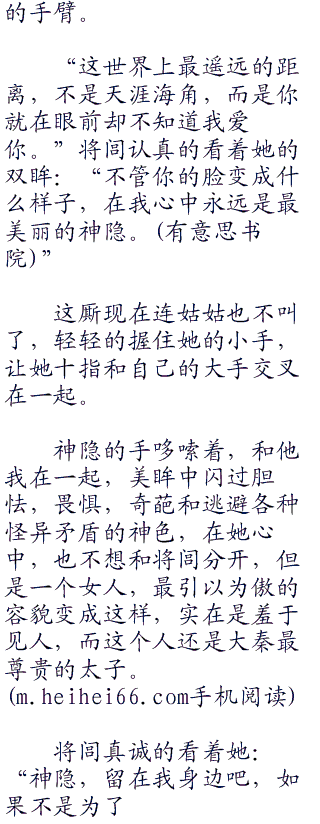 的手臂。
“这世界上最遥远的距
离，不是天涯海角，而是你
就在眼前却不知道我爱
你。”将闾认真的看着她的
双眸：“不管你的脸变成什
么样子，在我心中永远是最
美丽的神隐。(有意思书
院)”
这厮现在连姑姑也不叫
了，轻轻的握住她的小手，
让她十指和自己的大手交叉
在一起。
神隐的手哆嗦着，和他
我在一起，美眸中闪过胆
怯，畏惧，奇葩和逃避各种
怪异矛盾的神色，在她心
中，也不想和将闾分开，但
是一个女人，最引以为傲的
容貌变成这样，实在是羞于
见人，而这个人还是大秦最
尊贵的太子。
(m.heihei66.com手机阅读)
将闾真诚的看着她：
“神隐，留在我身边吧，如
果不是为了